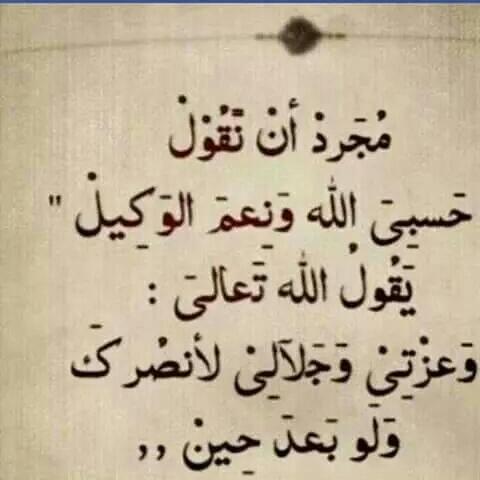 مُجَردْ أنْ نَّقُوْلْ
حَسبِىَ الله وَنِعمَ الوَكِيلْ "
يَقُولُ الله تَعالىَ :
وَعزْتِىْ وَجَلآلِىْ لأنصُركَ
وَلَو بَعدَ حِينْ ,,